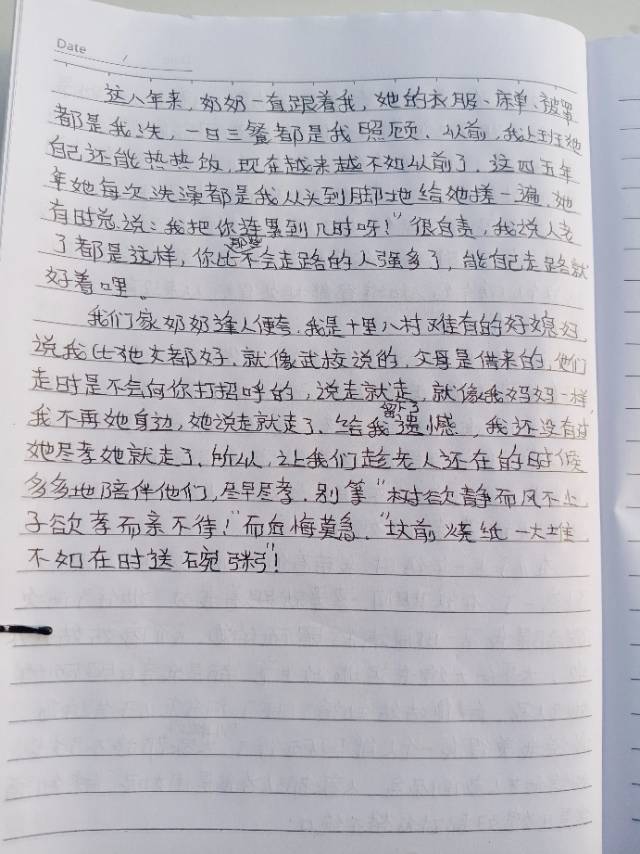 Date /
这八年来,奶奶一直跟着我,她的衣服、床单、被罩
都是我洗,一日三餐都是我照顾、以前,我上班她
自己还能热热饭,现在越来越不如以前了,这四五年
年她每次洗澡都是我从头到脚地给她搓一遍,她
有时总说:我把你连累到几时呀!”很自责,我说人老
了都是这样,你比那些不会走路的人强多了,能自己走路就
好着哩。
我们家奶奶逢人便夸,我是十里八村难有的好媳妇,
说我比她女都好、就像武校说的,父母是借来的,他们
走时是不会向你打招呼的,说走就走,就像我妈妈一样,
我不再她身边,她说走就走了、给我留下了遗憾,我还没有过
她尽孝她就走了、所以,让我们趁老人还在的时候
多多地陪伴他们,尽早尽孝、别等“树欲静而风不止,
子欲孝而亲不待!”而后悔莫急、“坟前烧纸一大堆,
不如在时送碗粥”!